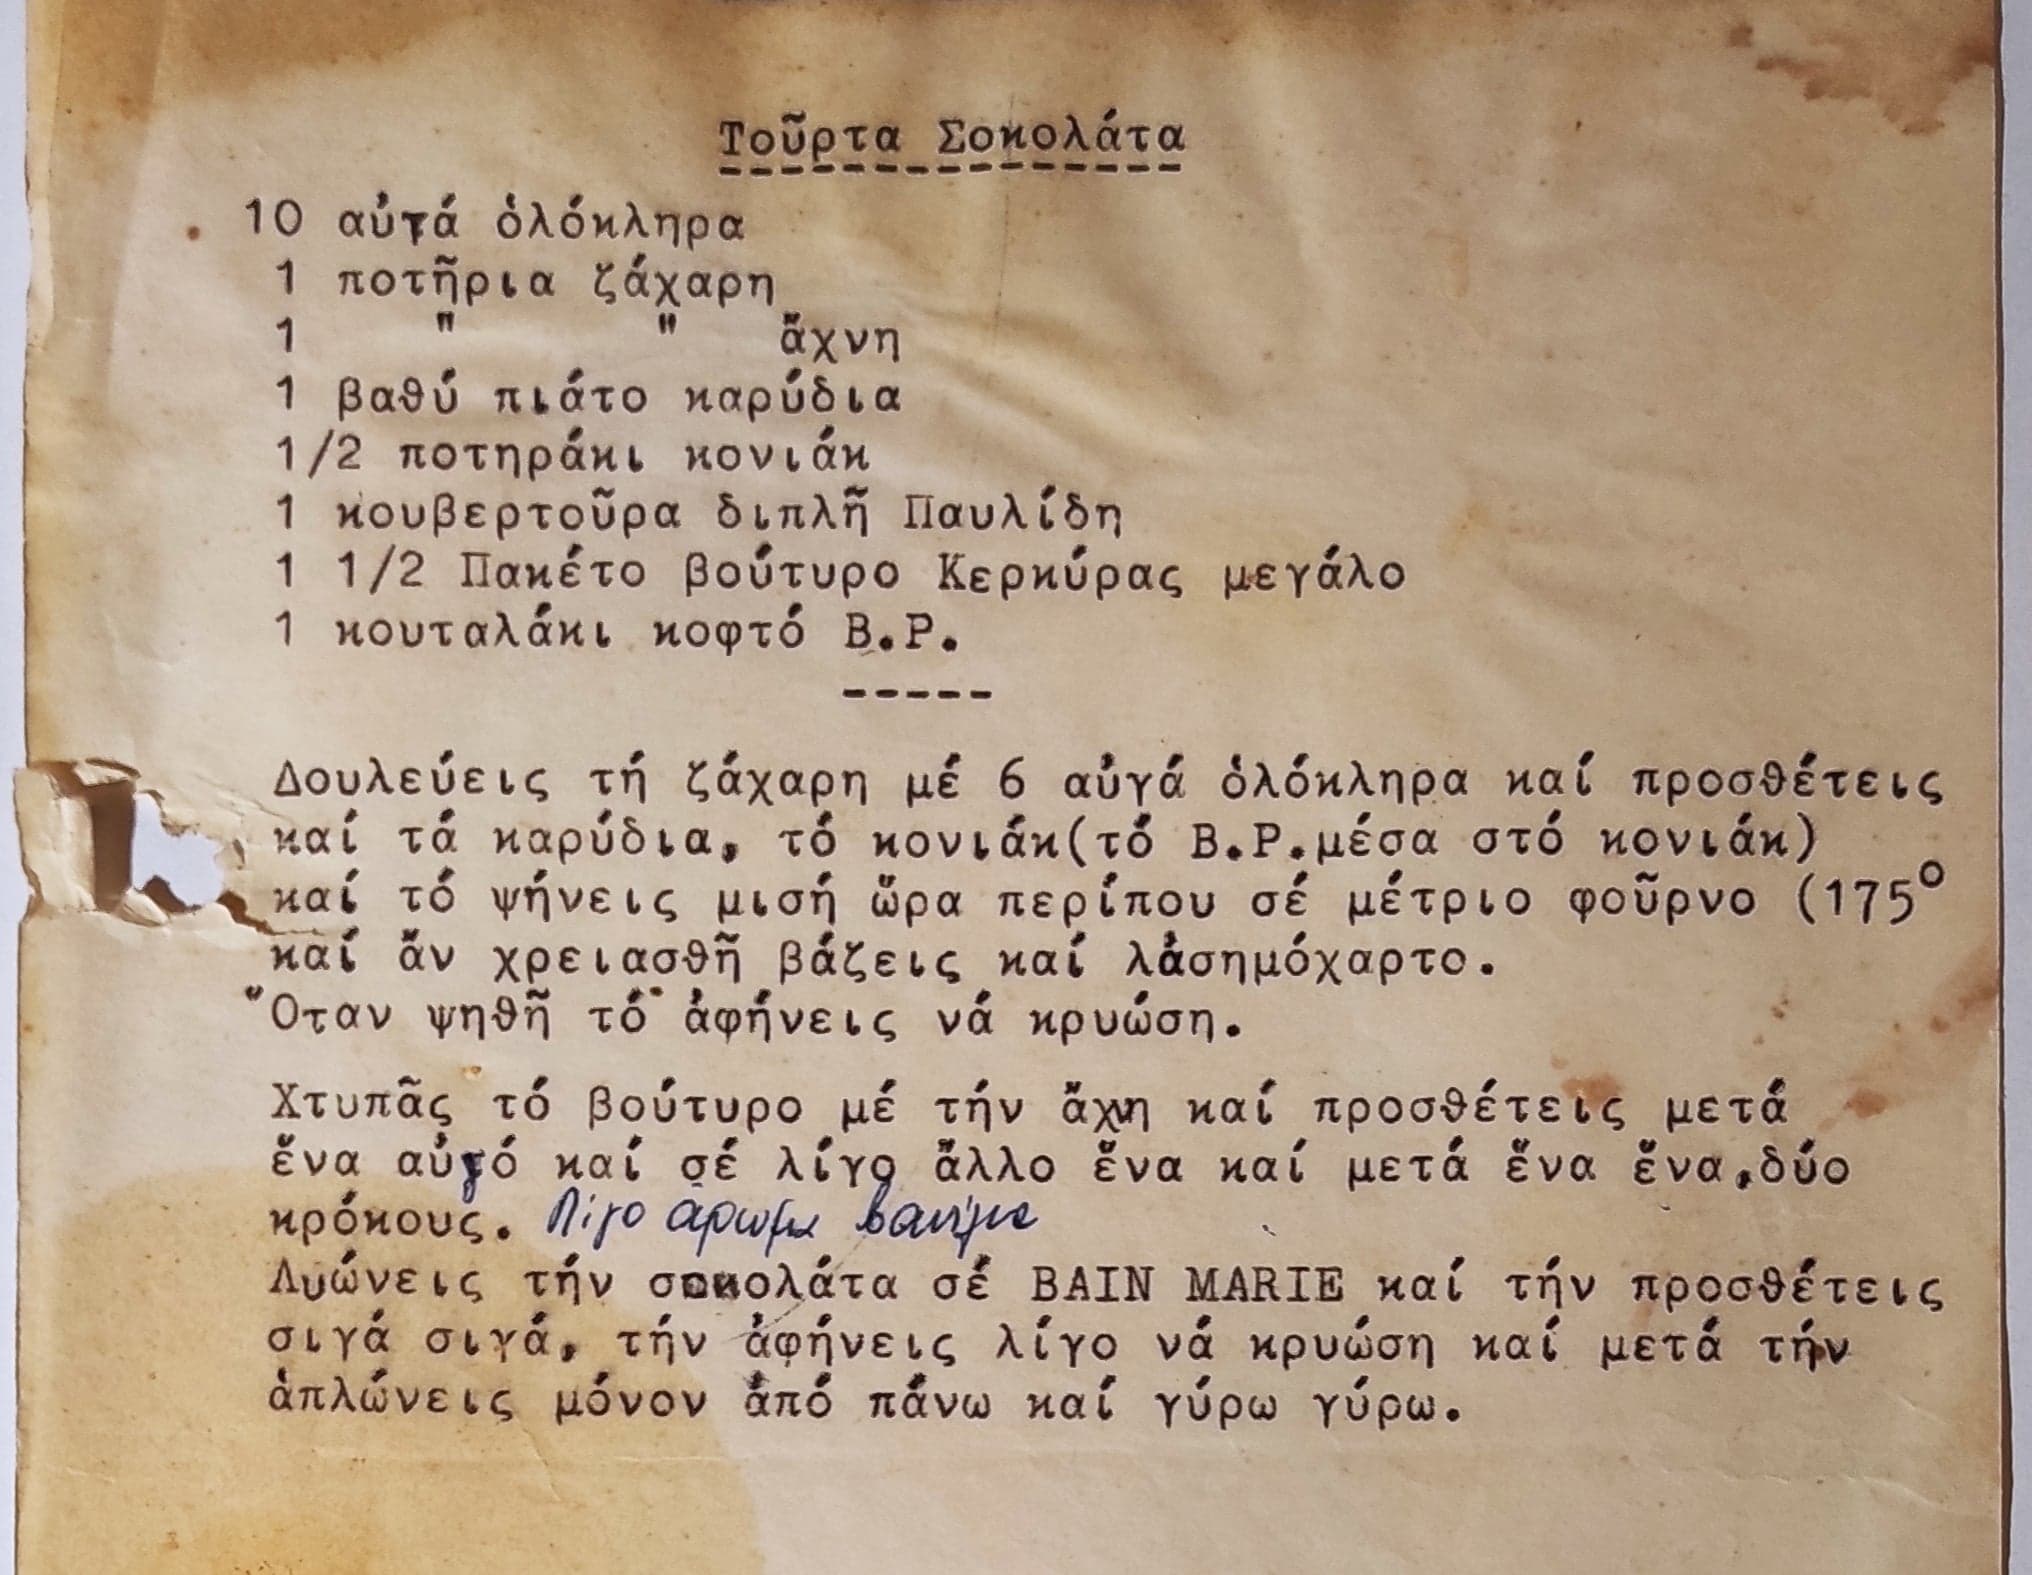 Τοῦρτα Σοκολάτα
10 αὐτά ὁλόκληρα
1 ποτῆρια ζάχαρη
1 " " ἄχνη
1 βαθύ πιάτο καρύδια
1/2 ποτηράκι κονιάκ
1 κουβερτοῦρα διπλῆ Παυλίδη
1 1/2 Πακέτο βούτυρο Κερκύρας μεγάλο
1 κουταλάκι κοφτό B.P.
-----
Δουλεύεις τή ζάχαρη μέ 6 αὐγά ὁλόκληρα καί προσθέτεις
καί τά καρύδια, τό κονιάκ(τό B.P.μέσα στό κονιάκ)
καί τό ψήνεις μισή ὥρα περίπου σέ μέτριο φοῦρνο (175°
καί ἄν χρειασθῆ βάζεις καί λάσημόχαρτο.
Ὅταν ψηθῆ τό ἀφήνεις νά κρυώση.
Χτυπᾶς τό βούτυρο μέ τήν ἄχνη καί προσθέτεις μετά
ἕνα αὐγό καί σέ λίγο ἄλλο ἕνα καί μετά ἕνα ἕνα,δύο
κρόκους. Λίγο άρωμα βανίλια
Λυώνεις τήν σοκολάτα σέ BAIN MARIE καί τήν προσθέτεις
σιγά σιγά, τήν ἀφήνεις λίγο νά κρυώση καί μετά τήν
ἁπλώνεις μόνον ἀπό πάνω καί γύρω γύρω.